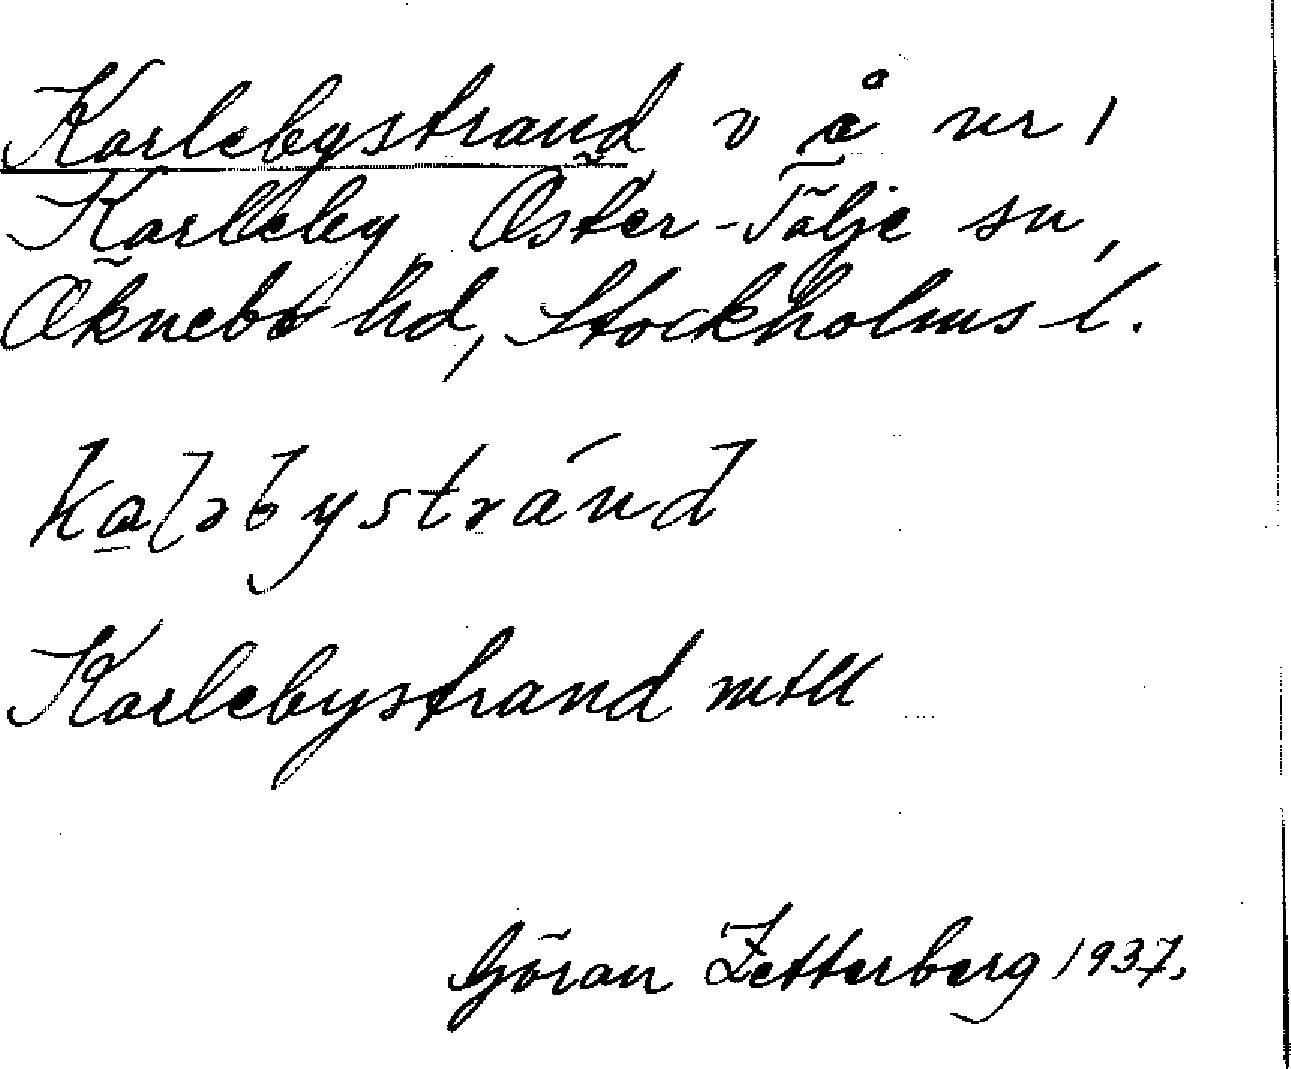 Karlebystrand v å nr 1
Karleby Öster-Tälje sn,
Öknebo hd, Stockholms l.
Karlebystrand mtll
Göran Zetterberg 1937.